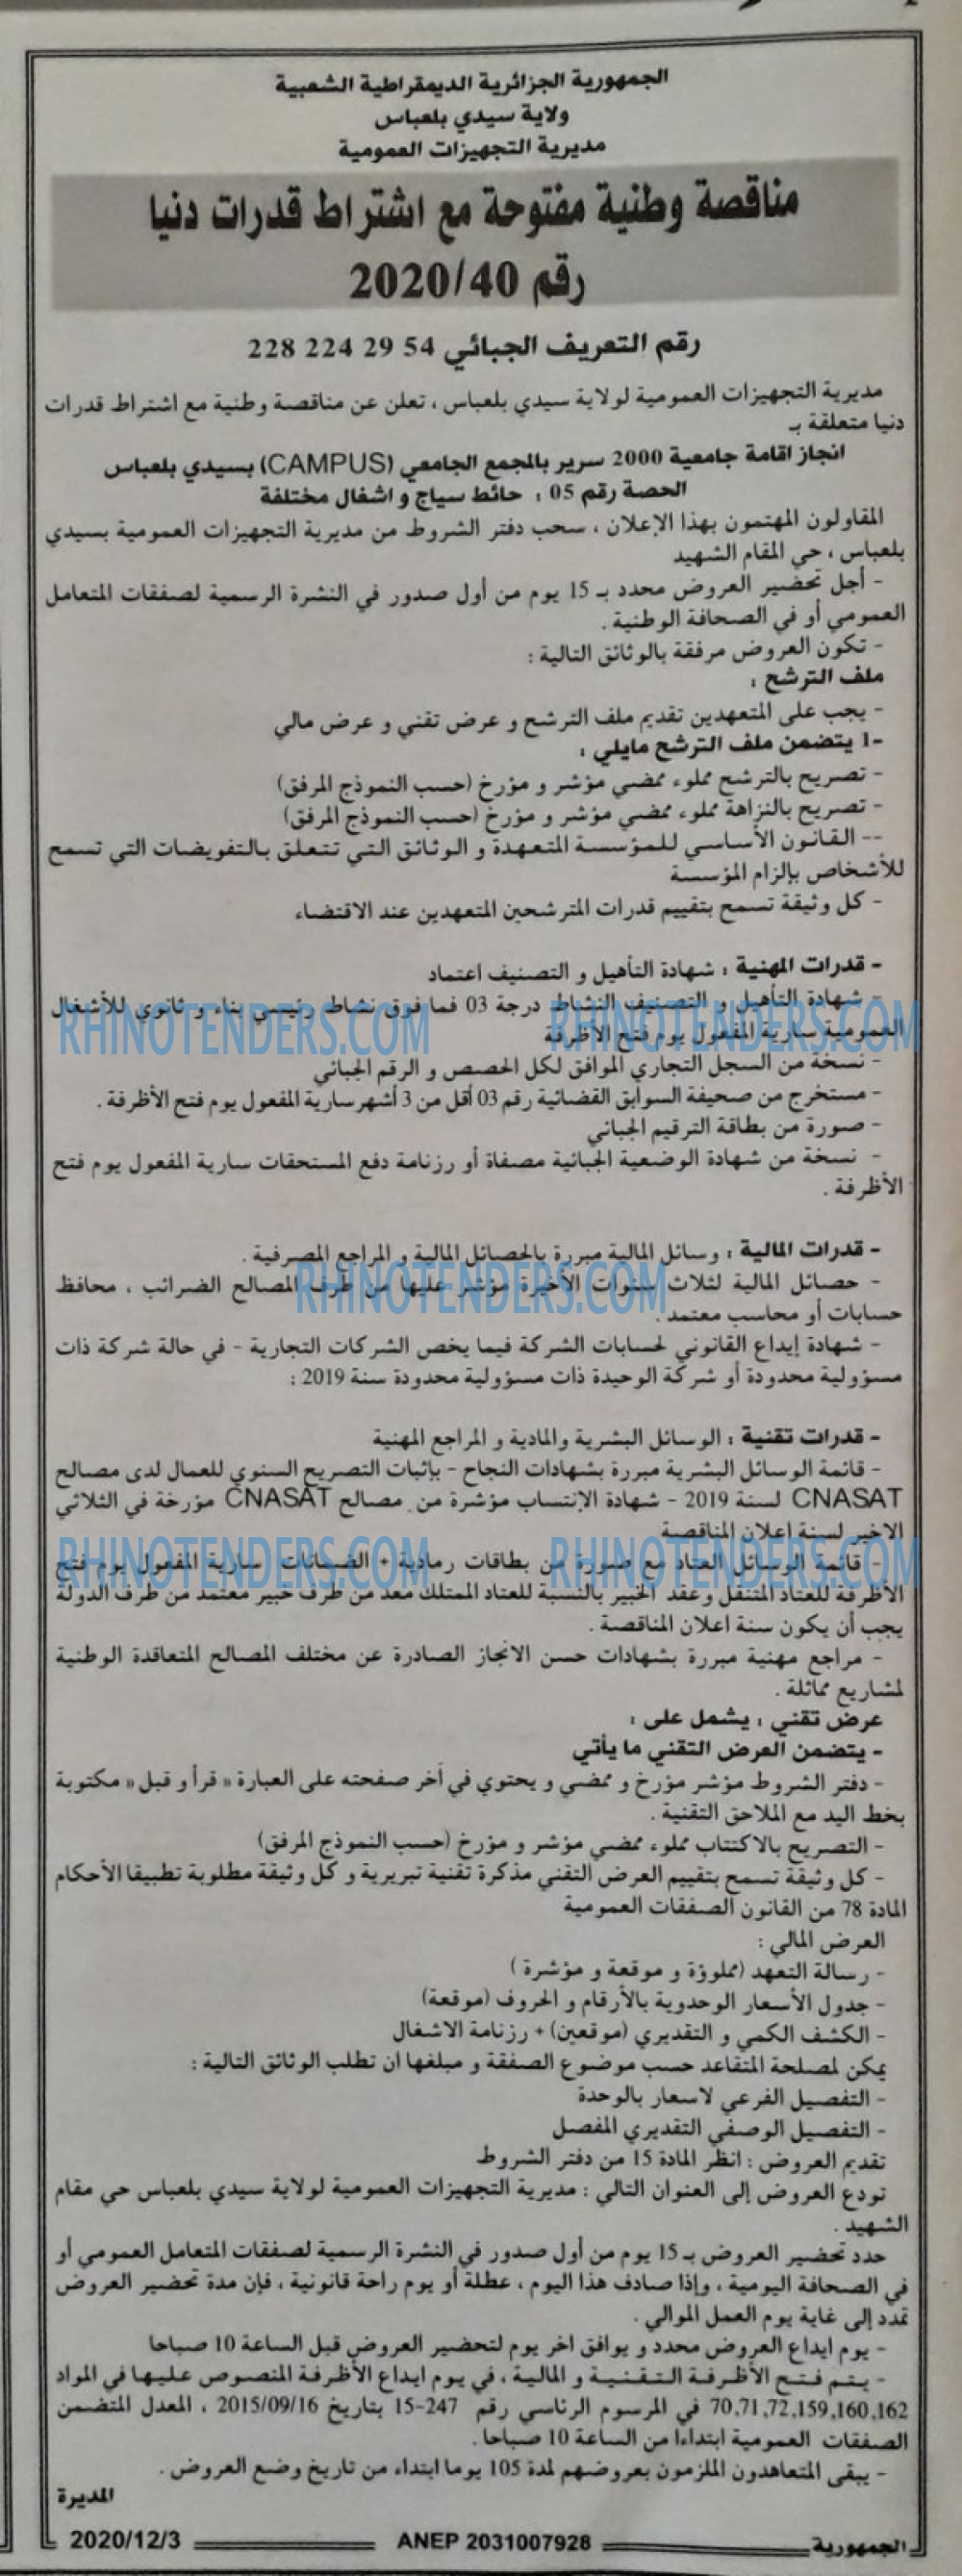 الجمهورية الجزائرية الديمقراطية الشعبية
ولاية سيدي بلعباس
مديرية التجهيزات العمومية
مناقصة وطنية مفتوحة مع اشتراط قدرات دنيا
رقم 2020/40
رقم التعريف الجبائي 54 29 224 228
مديرية التجهيزات العمومية لولاية سيدي بلعباس ، تعلن عن مناقصة وطنية مع اشتراط قدرات
دنيا متعلقة بـ
انجاز اقامة جامعية 2000 سرير بالمجمع الجامعي (CAMPUS) بسيدي بلعباس
الحصة رقم 05 : حائط سياج و اشغال مختلفة
المقاولون المهتمون بهذا الإعلان ، سحب دفتر الشروط من مديرية التجهيزات العمومية بسيدي
بلعباس ، حي المقام الشهيد
- أجل تحضير العروض محدد بـ 15 يوم من أول صدور في النشرة الرسمية لصفقات المتعامل
العمومي أو في الصحافة الوطنية .
- تكون العروض مرفقة بالوثائق التالية :
ملف الترشح :
- يجب على المتعهدين تقديم ملف الترشح و عرض تقني و عرض مالي
1- يتضمن ملف الترشح مايلي :
- تصريح بالترشح مملوء ممضي مؤشر و مؤرخ (حسب النموذج المرفق)
- تصريح بالنزاهة مملوء ممضي مؤشر و مؤرخ (حسب النموذج المرفق)
-- القانون الأساسي للمؤسسة المتعهدة و الوثائق التي تتعلق بالتفويضات التي تسمح
للأشخاص بإلزام المؤسسة
- كل وثيقة تسمح بتقييم قدرات المترشحين المتعهدين عند الاقتضاء
- قدرات المهنية : شهادة التأهيل و التصنيف اعتماد
- شهادة التأهيل و التصنيف النشاط درجة 03 فما فوق نشاط رئيسي بناء و ثانوي للأشغال
العمومية سارية المفعول يوم فتح الأظرفة
RHINOTENDERS.COM RHINOTENDERS.COM
- نسخة من السجل التجاري الموافق لكل الحصص و الرقم الجبائي
- مستخرج من صحيفة السوابق القضائية رقم 03 أقل من 3 أشهر سارية المفعول يوم فتح الأظرفة .
- صورة من بطاقة الترقيم الجبائي
- نسخة من شهادة الوضعية الجبائية مصفاة أو رزنامة دفع المستحقات سارية المفعول يوم فتح
الأظرفة .
- قدرات المالية : وسائل المالية مبررة بالحصائل المالية و المراجع المصرفية .
- حصائل المالية لثلاث سنوات الأخيرة مؤشر عليها من طرف المصالح الضرائب ، محافظ
RHINOTENDERS.COM
حسابات أو محاسب معتمد .
- شهادة إيداع القانوني لحسابات الشركة فيما يخص الشركات التجارية - في حالة شركة ذات
مسؤولية محدودة أو شركة الوحيدة ذات مسؤولية محدودة سنة 2019 :
- قدرات تقنية : الوسائل البشرية والمادية و المراجع المهنية
- قائمة الوسائل البشرية مبررة بشهادات النجاح - بإثبات التصريح السنوي للعمال لدى مصالح
CNASAT لسنة 2019 - شهادة الإنتساب مؤشرة من مصالح CNASAT مؤرخة في الثلاثي
الاخير لسنة اعلان المناقصة
- قائمة الوسائل العتاد مع صورة من بطاقات رمادية + الضمانات سارية المفعول يوم فتح
RHINOTENDERS.COM RHINOTENDERS.COM
الأظرفة للعتاد المتنقل وعقد الخبير بالنسبة للعتاد الممتلك معد من طرف خبير معتمد من طرف الدولة
يجب أن يكون سنة اعلان المناقصة .
- مراجع مهنية مبررة بشهادات حسن الانجاز الصادرة عن مختلف المصالح المتعاقدة الوطنية
لمشاريع مماثلة .
عرض تقني : يشمل على :
- يتضمن العرض التقني ما يأتي
- دفتر الشروط مؤشر مؤرخ و ممضي و يحتوي في آخر صفحته على العبارة « قرأ و قبل » مكتوبة
بخط اليد مع الملاحق التقنية .
- التصريح بالاكتتاب مملوء ممضي مؤشر و مؤرخ (حسب النموذج المرفق)
- كل وثيقة تسمح بتقييم العرض التقني مذكرة تقنية تبريرية و كل وثيقة مطلوبة تطبيقا الأحكام
المادة 78 من القانون الصفقات العمومية
العرض المالي :
- رسالة التعهد (مملوؤة و موقعة و مؤشرة )
- جدول الأسعار الوحدوية بالأرقام و الحروف (موقعة)
- الكشف الكمي و التقديري (موقعين) + رزنامة الاشغال
يمكن لمصلحة المتقاعد حسب موضوع الصفقة و مبلغها ان تطلب الوثائق التالية :
- التفصيل الفرعي لاسعار بالوحدة
- التفصيل الوصفي التقديري المفصل
تقديم العروض : انظر المادة 15 من دفتر الشروط
تودع العروض إلى العنوان التالي : مديرية التجهيزات العمومية لولاية سيدي بلعباس حي مقام
الشهيد .
حدد تحضير العروض بـ 15 يوم من أول صدور في النشرة الرسمية لصفقات المتعامل العمومي أو
في الصحافة اليومية ، وإذا صادف هذا اليوم ، عطلة أو يوم راحة قانونية ، فإن مدة تحضير العروض
تمدد إلى غاية يوم العمل الموالي .
- يوم ايداع العروض محدد و يوافق اخر يوم لتحضير العروض قبل الساعة 10 صباحا
- يتم فتح الأظرفة التقنية و المالية ، في يوم ايداع الأظرفة المنصوص عليها في المواد
70,71,72,159,160,162 في المرسوم الرئاسي رقم 247-15 بتاريخ 2015/09/16 ، المعدل المتضمن
الصفقات العمومية ابتداءا من الساعة 10 صباحا .
- يبقى المتعاهدون الملزمون بعروضهم لمدة 105 يوما ابتداء من تاريخ وضع العروض .
المديرة
الجمهورية ANEP 2031007928 2020/12/3